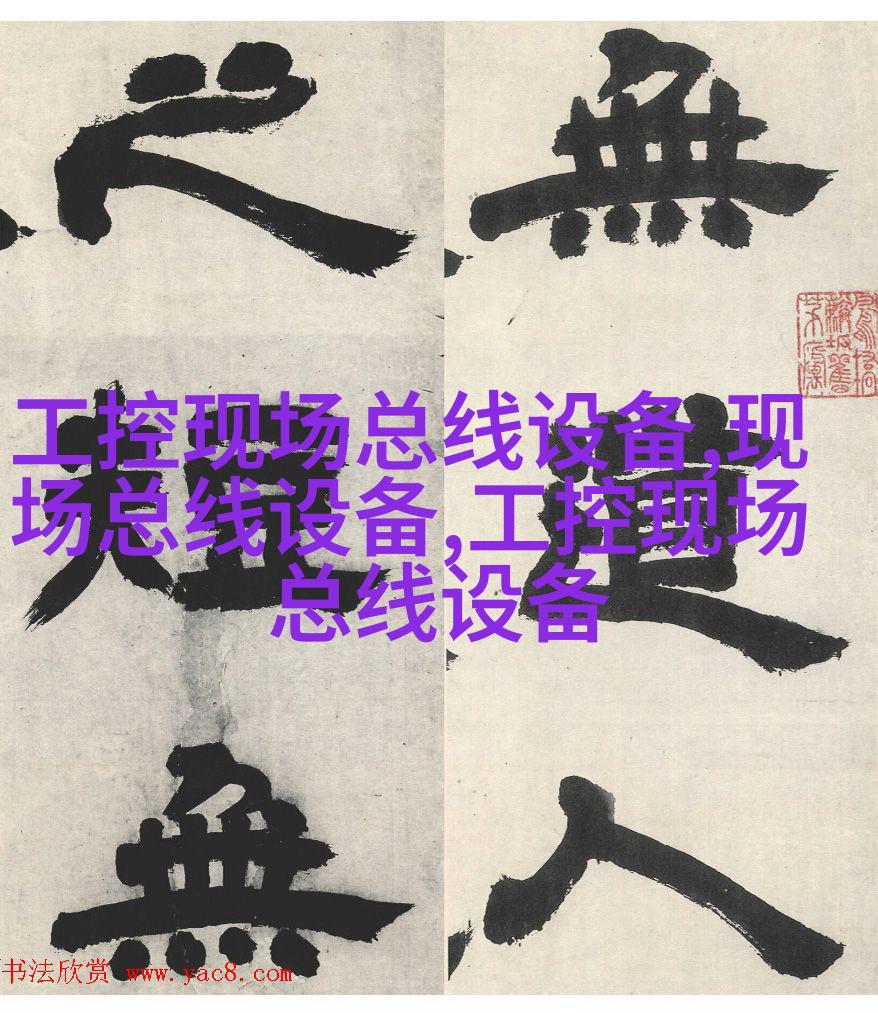 無
道
人
之
短
無
工控现场总线设备,现
场总线设备,工控现场
总线设备
书法欣赏 www.yac8.com